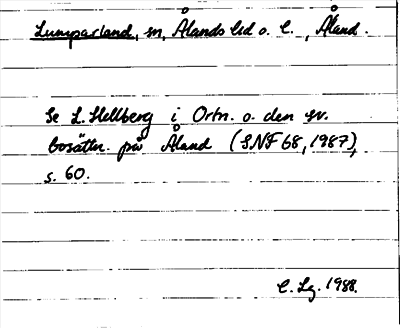 Lumparland, sn, Ålands lid o. l., Åland.
Se L. Hellberg i Ortn. o. den sv.
bosättn. på Åland (SNF 68, 1987),
s. 60.
C. Lg. 1988.